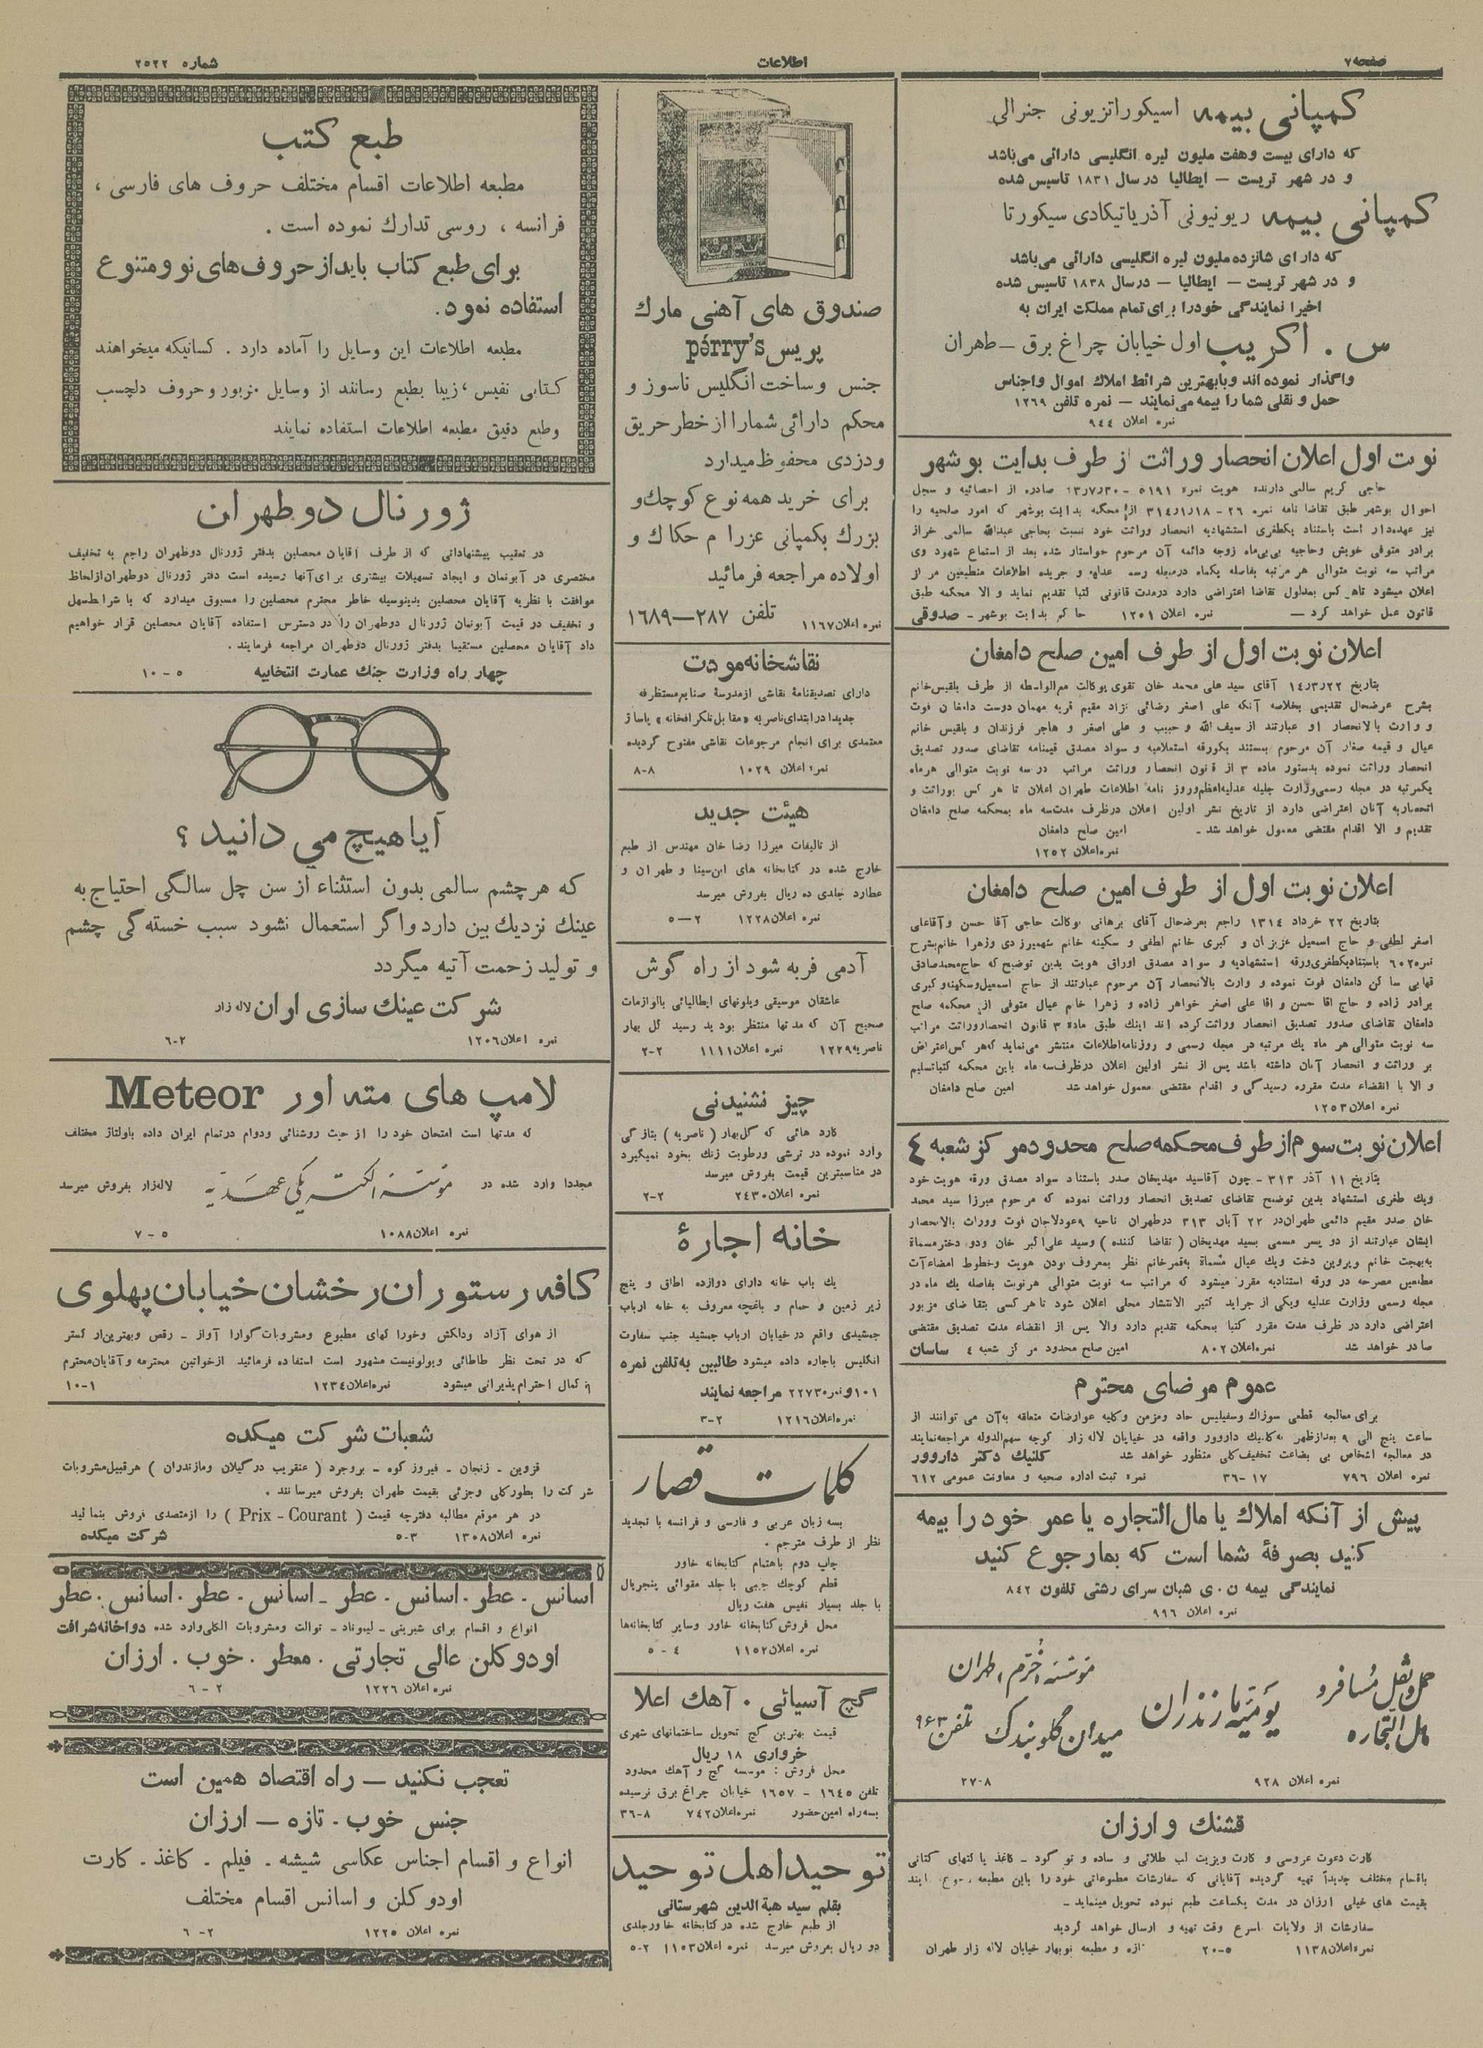 صفحه ۷
اطلاعات
شماره ۲۵۲۲
کمپانی بیمه اسیکوراتزیونی جنرالی
که دارای بیست وهفت ملیون لیره انگلیسی دارائی می‌باشد
و در شهر تریست — ایطالیا درسال ۱۸۳۱ تاسیس شده
کمپانی بیمه ریونیونی آذریاتیکادی سیکورتا
که دارای شانزده ملیون لیره انگلیسی دارائی می‌باشد
و در شهر تریست — ایطالیا — درسال ۱۸۳۸ تاسیس شده
اخیرا نمایندگی خودرا برای تمام مملکت ایران به
س . اکریب اول خیابان چراغ برق — طهران
واگذار نموده اند وبابهترین شرائط املاك اموال واجناس
حمل و نقلی شما را بیمه می‌نمایند — نمره تلفن ۱۲۶۹
نمره اعلان ۹۴۴
نوبت اول اعلان انحصار وراثت از طرف بدایت بوشهر
حاجی کریم سالمی دارنده هویت نمره ۵۱۹۱ — صادره از احصائیه و سجل
احوال بوشهر طبق تقاضا نامه نمره ۲۶ - ۳۱۴/۱/۱۸ از محکمه بدایت بوشهر که امور صلحیه را
نیز عهده‌دار است باستناد یکطغری استشهادیه انحصار وراثت خود نسبت بحاجی عبدالله سالمی خراز
برادر متوفی خویش وحاجیه بی‌بی‌ماه زوجه دائمه آن مرحوم خواستار شده بعد از استماع شهود وی
مراتب سه نوبت متوالی هر مرتبه بفاصله یکماه درمجله رسمی عدلیه و جریده اطلاعات منطبعین مرکز
اعلان میشود تاهرکس بمدلول تقاضا اعتراضی دارد درمدت قانونی کتبا تقدیم نماید و الا محکمه طبق
قانون عمل خواهد کرد — نمره اعلان ۱۲۵۱ حاکم بدایت بوشهر - صدوقی
اعلان نوبت اول از طرف امین صلح دامغان
بتاریخ ۱۴/۳/۲۲ آقای سید علی محمد خان تقوی بوکالت مع‌الواسطه از طرف بلقیس‌خانم
بشرح عرضحال تقدیمی بخلاصه آنکه علی اصغر رضائی نژاد مقیم قریه مهمان دوست دامغان فوت
و وارث بالانحصار او عبارتند از سیف الله و حبیب و علی اصغر و هاجر فرزندان و بلقیس خانم
عیال و قیمه صغار آن مرحوم بمستند یکورقه استعلامیه و سواد مصدق قیمنامه تقاضای صدور تصدیق
انحصار وراثت نموده بدستور ماده ۳ از قانون انحصار وراثت مراتب در سه نوبت متوالی هرماه
یکمرتبه در مجله رسمی وزارت جلیله عدلیه‌اعظم‌وروز نامه اطلاعات طهران اعلان تا هر کس بوراثت و
انحصاریه آنان اعتراضی دارد از تاریخ نشر اولین اعلان درظرف مدت‌سه ماه بمحکمه صلح دامغان
تقدیم و الا اقدام مقتضی معمول خواهد شد. امین صلح دامغان
نمره‌اعلان ۱۲۵۲
اعلان نوبت اول از طرف امین صلح دامغان
بتاریخ ۲۲ خرداد ۱۳۱۴ راجع بعرضحال آقای برهانی بوکالت حاجی آقا حسن و آقاعلی
اصغر لطفی و حاج اسمعیل عزیزیان و کبری خانم لطفی و سکینه خانم شهمیرزدی وزهرا خانم‌بشرح
نمره۶۰۲ باستنادیکطغری‌ورقه استشهادیه و سواد مصدق اوراق هویت بدین توضیح که حاج‌محمدصادق
ساکن دامغان فوت نموده و وارث بالانحصار آن مرحوم عبارتند از حاج اسمعیل‌وسکینه‌وکبری
برادر زاده و حاج آقا حسن و آقا علی اصغر خواهر زاده و زهرا خانم عیال متوفی از محکمه صلح
دامغان تقاضای صدور تصدیق انحصار وراثت کرده اند اینك طبق ماده ۳ قانون انحصاروراثت مراتب
سه نوبت متوالی هر ماه یك مرتبه در مجله رسمی و روزنامه‌اطلاعات منتشر می‌نماید که‌هر کس‌اعتراض
بر وراثت و انحصار آنان داشته باشد پس از نشر اولین اعلان درظرف‌سه ماه باین محکمه کتباتسلیم
و الا با انقضاء مدت مقرره رسیدگی و اقدام مقتضی معمول خواهد شد امین صلح دامغان
نمره اعلان۱۲۵۳
اعلان نوبت سوم از طرف محکمه صلح محدود مرکز شعبه ٤
بتاریخ ۱۱ آذر ۳۱۳ — چون آقاسید مهدیخان صدر باستناد سواد مصدق ورقه هویت خود
ویك طغری استشهاد بدین توضیح تقاضای تصدیق انحصار وراثت نموده که مرحوم میرزا سید محمد
خان صدر مقیم دائمی طهران‌در ۲۲ آبان ۳۱۳ درطهران ناحیه ۹عودلاجان فوت وورات بالانحصار
ایشان عبارتند از دو پسر مسمی بسید مهدیخان ( تقاضا کننده ) وسید علی اکبر خان ودو دخترمسماة
به‌بهجت خانم وپروین دخت ویك عیال مسماة به‌قمرخانم نظر بمعروف بودن هویت وخطوط امضاءآت
مطلعین مصرحه در ورقه استنادیه مقرر میشود که مراتب سه نوبت متوالی هرنوبت بفاصله یك ماه در
مجله رسمی وزارت عدلیه ویکی از جراید کثیر الانتشار محلی اعلان شود تا هر کسی بتقاضای مزبور
اعتراضی دارد در ظرف مدت مقرر کتبا بمحکمه تقدیم دارد والا پس از انقضاء مدت تصدیق مقتضی
صادر خواهد شد نمره‌اعلان ۸۰۲ امین صلح محدود مرکز شعبه ٤ ساسان
عموم مرضای محترم
برای معالجه قطعی سوزاك وسفیلیس حاد ومزمن وکلیه عوارضات متعلقه به‌آن می توانند از
ساعت پنج الی ۹ بعدازظهر به‌کلنیك داروور واقعه در خیابان لاله زار کوچه سهم‌الدوله مراجعه‌نمایند
در معالجه اشخاص بی بضاعت تخفیف‌کلی منظور خواهد شد کلنیك دکتر داروور
نمره اعلان ۷۹۶ ۱۷-۳۶ نمره ثبت اداره صحیه و معاونت عمومی ۶۱۲
پیش از آنکه املاك یا مال التجاره یا عمر خود را بیمه
کنید بصرفهٔ شما است که بما رجوع کنید
نمایندگی بیمه ن.ی شبان سرای رشتی تلفون ۸۴۲
نمره اعلان ۹۹۶
حمل‌ونقل مسافر و مال التجاره
یومیه مازندران
موسسه اخترم طهران
میدان گلوبندك تلفن ۹۶۳
نمره اعلان ۹۲۸ ۸-۲۷
قشنك وارزان
کارت دعوت عروسی و کارت ویزیت لب طلائی و ساده و نو گود - کاغذ پاکتهای کتانی
باقسام مختلف جدیداً تهیه گردیده آقایانی که سفارشات مطبوعاتی خود را باین مطبعه رجوع نمایند
بقیمت های خیلی ارزان در مدت یکساعت طبع نموده تحویل مینماید —
سفارشات از ولایات اسرع وقت تهیه و ارسال خواهد گردید
نمره‌اعلان۱۱۳۸ ۵-۲۰ و مطبعه نوبهار خیابان لاله زار طهران
صندوق های آهنی مارك
پریس pérry's
جنس وساخت انگلیس ناسوز و
محکم دارائی شمارا از خطر حریق
ودزدی محفوظ میدارد
برای خرید همه نوع کوچك و
بزرك بکمپانی عزرا م حکاك و
اولاده مراجعه فرمائید
نمره اعلان۱۱۶۷ تلفن ۲۸۷—۱۶۸۹
نقاشخانه مودت
دارای تصدیقنامهٔ نقاشی ازمدرسهٔ صنایع‌مستظرفه
جدیدا درابتدای‌ناصریه «مقابل‌تلگرافخانه» پاساژ
معتمدی برای انجام مرجوعات نقاشی مفتوح گردیده
نمره اعلان ۱۰۲۹ ۸-۸
هیئت جدید
از تالیفات میرزا رضا خان مهندس از طبع
خارج شده در کتابخانه های ابن‌سینا و طهران و
عطارد جلدی ده ریال بفروش میرسد
نمره اعلان۱۲۲۸ ۲—۵
آدمی فربه شود از راه گوش
عاشقان موسیقی ویلونهای ایطالیائی بالوازمات
صحیح آن که مدتها منتظر بودید رسید گل بهار
ناصریه۱۲۲۹ نمره اعلان۱۱۱۱ ۲-۲
چیز نشنیدنی
کارد هائی که گل‌بهار ( ناصریه ) بتازگی
وارد نموده در ترشی ورطوبت زنك بخود نمیگیرد
در مناسبترین قیمت بفروش میرسد
نمره اعلان۲۴۳۰ ۲-۲
خانه اجارهٔ
یك باب خانه دارای دوازده اطاق و پنج
زیر زمین و حمام و باغچه معروف به خانه ارباب
جمشیدی واقع درخیابان ارباب جمشید جنب سفارت
انگلیس باجاره داده میشود طالبین به تلفن نمره
۱۰۱ونمره۲۲۷۳ مراجعه نمایند
نمره‌اعلان۱۲۱۶ ۲-۳
کلمات قصار
بسه زبان عربی و فارسی و فرانسه با تجدید
نظر از طرف مترجم .
چاپ دوم باهتمام کتابخانه خاور
قطع کوچك جیبی با جلد مقوائی پنجریال
با جلد بسیار نفیس هفت ریال
محل فروش کتابخانه خاور وسایر کتابخانه‌ها
نمره اعلان۱۱۵۲ ٤ - ٥
گچ آسیائی . آهك اعلا
قیمت بهترین گچ تحویل ساختمانهای شهری
خرواری ۱۸ ریال
محل فروش : موسسه گچ و آهك محدود
تلفن ۱۶۴۵ - ۱۶۵۷ خیابان چراغ برق نرسیده
بسه‌راه امین‌حضور نمره‌اعلان ۷۴۲ ۸-۳۶
توحید اهل توحید
بقلم سید هبة الدین شهرستانی
از طبع خارج شده درکتابخانه خاورجلدی
دو ریال بفروش میرسد نمره اعلان۱۱۵۳ ۲-۵
طبع کتب
مطبعه اطلاعات اقسام مختلف حروف های فارسی ،
فرانسه ، روسی تدارك نموده است .
برای طبع کتاب باید از حروف‌های نو ومتنوع
استفاده نمود.
مطبعه اطلاعات این وسایل را آماده دارد . کسانیکه میخواهند
کتابی نفیس ، زیبا بطبع رسانند از وسایل مزبور وحروف دلچسب
وطبع دقیق مطبعه اطلاعات استفاده نمایند
ژورنال دوطهران
در تعقیب پیشنهاداتی که از طرف آقایان محصلین بدفتر ژورنال دوطهران راجع به تخفیف
مختصری در آبونمان و ایجاد تسهیلات بیشتری برای‌آنها رسیده است دفتر ژورنال دوطهران‌ازلحاظ
موافقت با نظریه آقایان محصلین بدینوسیله خاطر محترم محصلین را مسبوق میدارد که با شرائط‌سهل
و تخفیف در قیمت آبونمان ژورنال دوطهران را در دسترس استفاده آقایان محصلین قرار خواهیم
داد آقایان محصلین مستقیما بدفتر ژورنال دوطهران مراجعه فرمایند.
چهار راه وزارت جنك عمارت انتخابیه ۵ - ۱۰
آیا هیچ می دانید ؟
که هرچشم سالمی بدون استثناء از سن چل سالگی احتیاج به
عینك نزدیك بین دارد واگر استعمال نشود سبب خسته‌گی چشم
و تولید زحمت آتیه میگردد
شرکت عینك سازی اران لاله زار
نمره اعلان۱۲۰۶ ۲-۶
لامپ های مته اور Meteor
که مدتها است امتحان خود را از حیث روشنائی ودوام درتمام ایران داده باولتاژ مختلف
مجددا وارد شده در موسسه الکتریکی عهدیه لاله‌زار بفروش میرسد
نمره اعلان۱۰۸۸ ۵ - ۷
کافه رستوران رخشان خیابان پهلوی
از هوای آزاد ودلکش وخوراکهای مطبوع ومشروبات گوارا آواز - رقص وبهترین‌ارکستر
که در تحت نظر طاطائی ویولونیست مشهور است استفاده فرمائید ازخواتین محترمه وآقایان‌محترم
با کمال احترام‌پذیرائی میشود نمره‌اعلان۱۲۳۴ ۱-۱۰
شعبات شرکت میکده
قزوین - زنجان - فیروز کوه - بروجرد ( عنقریب درگیلان ومازندران ) هرقبیل‌مشروبات
شرکت را بطورکلی وجزئی بقیمت طهران بفروش میرسانند .
در هر موقع مطالبه دفترچه قیمت ( Prix - Courant ) را ازمتصدی فروش بنمائید
نمره اعلان۱۳۰۸ ۳-۵ شرکت میکده
اسانس . عطر . اسانس . عطر _ اسانس . عطر . اسانس . عطر
انواع و اقسام برای شیرینی - لیموناد - توالت ومشروبات الکلی‌وارد شده دواخانه‌شرافت
اودوکلن عالی تجارتی . معطر . خوب . ارزان
نمره اعلان ۱۲۲۶ ۲ - ۶
تعجب نکنید — راه اقتصاد همین است
جنس خوب . تازه — ارزان
انواع و اقسام اجناس عکاسی شیشه - فیلم - کاغذ - کارت
اودوکلن و اسانس اقسام مختلف
نمره اعلان ۱۲۲۵ ۲- ۶